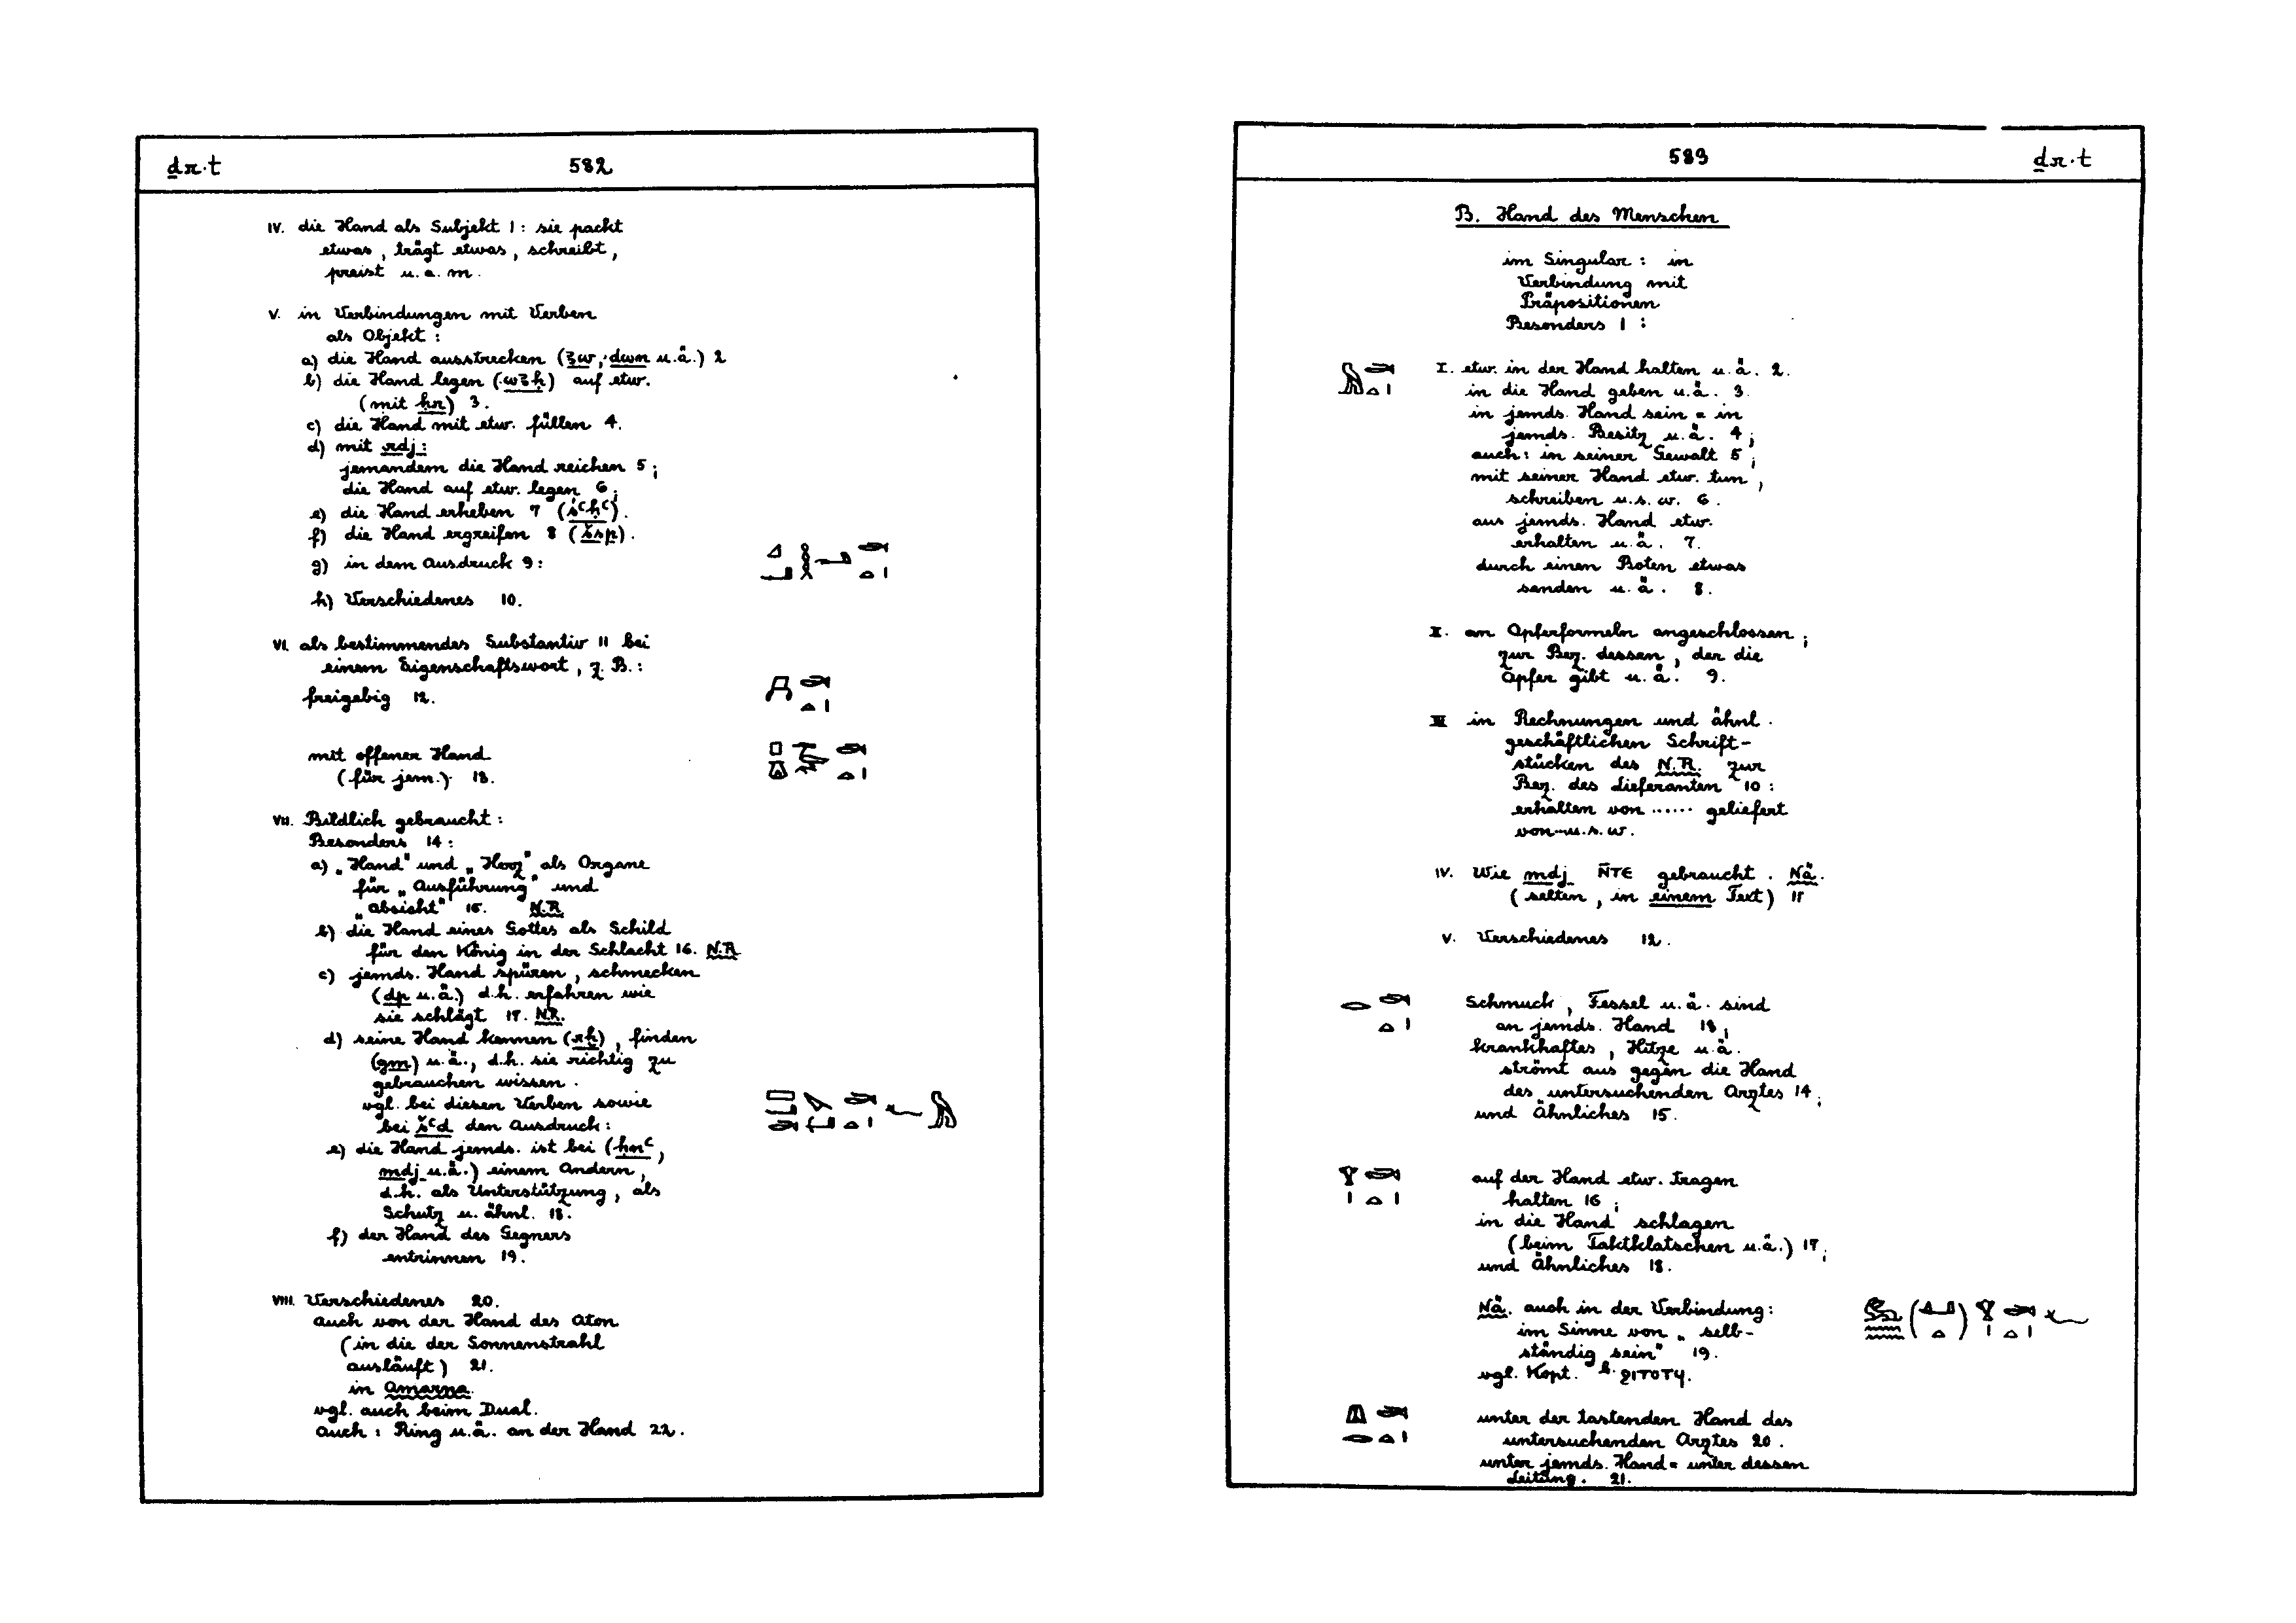 ḏr·t 582
IV. die Hand als Subjekt 1: sie packt
etwas, trägt etwas, schreibt,
preist u.a.m.
V. in Verbindungen mit Verben
als Objekt:
a) die Hand ausstrecken (ꜣw, dwn u.ä.) 2
b) die Hand legen (wꜣḥ) auf etw.
(mit ḥr) 3.
c) die Hand mit etw. füllen 4.
d) mit rdj:
jemandem die Hand reichen 5;
die Hand auf etw. legen 6;
e) die Hand erheben 7 (śꜥḥꜥ).
f) die Hand ergreifen 8 (šsp).
g) in dem Ausdruck 9:
h) Verschiedenes 10.
VI. als bestimmendes Substantiv 11 bei
einem Eigenschaftswort, z. B.:
freigebig 12.
mit offener Hand
(für jem.) 13.
VII. Bildlich gebraucht:
Besonders 14:
a) „Hand" und „Herz" als Organe
für „Ausführung" und
„Absicht" 15. N.R.
b) die Hand eines Gottes als Schild
für den König in der Schlacht 16. N.R.
c) jemds. Hand spüren, schmecken
(dp u.ä.) d.h. erfahren wie
sie schlägt 17. N.R.
d) seine Hand kennen (rḫ), finden
(gm) u.ä., d.h. sie richtig zu
gebrauchen wissen.
vgl. bei diesen Verben sowie
bei šꜥd den Ausdruck:
e) die Hand jemds. ist bei (ḥnꜥ,
mdj u.ä.) einem Andern,
d.h. als Unterstützung, als
Schutz u. ähnl. 18.
f) der Hand des Gegners
entrinnen 19.
VIII. Verschiedenes 20.
auch von der Hand des Aton
(in die der Sonnenstrahl
ausläuft) 21.
in Amarna.
vgl. auch beim Dual.
Auch: Ring u.ä. an der Hand 22.
583 ḏr·t
B. Hand des Menschen
im Singular: in
Verbindung mit
Präpositionen
Besonders 1:
I. etw. in der Hand halten u.ä. 2.
in die Hand geben u.ä. 3.
in jemds. Hand sein = in
jemds. Besitz u.ä. 4;
auch: in seiner Gewalt 5;
mit seiner Hand etw. tun,
schreiben u.s.w. 6.
aus jemds. Hand etw.
erhalten u.ä. 7.
durch einen Boten etwas
senden u.ä. 8.
II. an Opferformeln angeschlossen;
zur Bez. dessen, der die
Opfer gibt u.ä. 9.
III in Rechnungen und ähnl.
geschäftlichen Schrift-
stücken des N.R. zur
Bez. des Lieferanten 10:
erhalten von ...... geliefert
von...u.s.w.
IV. Wie mdj N̄TE gebraucht. Nä.
(selten, in einem Text) 11
V. Verschiedenes 12.
Schmuck, Fessel u.ä. sind
an jemds. Hand 13;
krankhaftes, Hitze u.ä.
strömt aus gegen die Hand
des untersuchenden Arztes 14;
und Ähnliches 15.
auf der Hand etw. tragen
halten 16;
in die Hand schlagen
(beim Taktklatschen u.ä.) 17;
und Ähnliches 18.
Nä. auch in der Verbindung:
im Sinne von „selb-
ständig sein" 19.
vgl. Kopt. b. ϩITOTϤ.
unter der tastenden Hand des
untersuchenden Arztes 20.
unter jemds. Hand = unter dessen
Leitung. 21.